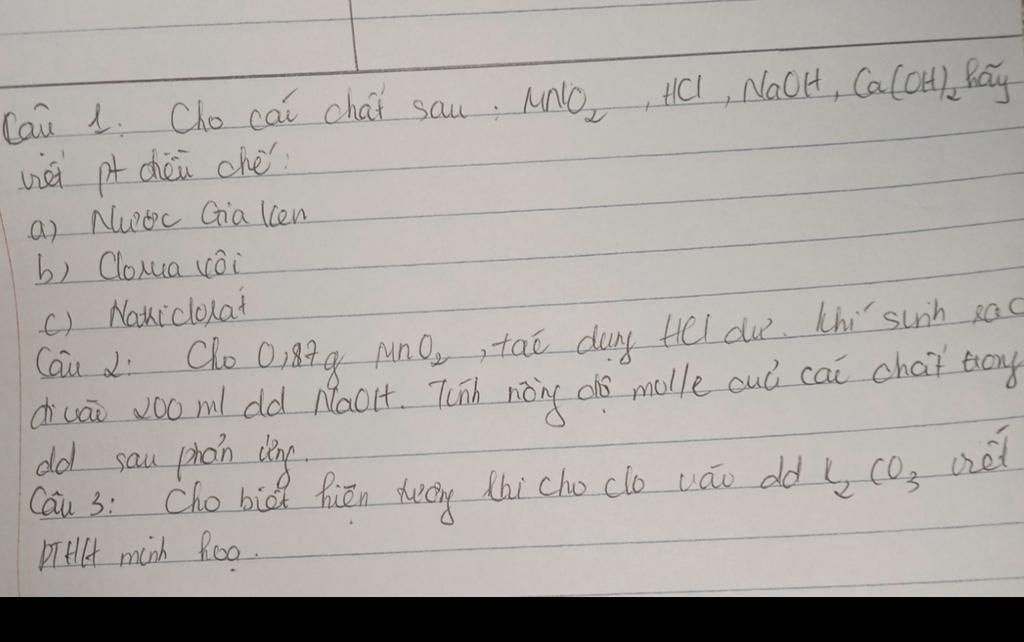 Câu 1: Cho các chất sau: MNO₂, HCl, NaOH, Ca(OH)₂ hãy
viết pt điều chế:
a) Nước Gia ken
b) Clorua vôi
c) Natriclorat
Câu 2: Cho 0,87g MnO₂, tác dụng HCl dư. Khí sinh ra c
đi vào 200 ml dd NaOH. Tính nồng độ mol/l củả các chất trong
dd sau phản ứng.
Câu 3: Cho biết hiện tượng khi cho clo vào dd K₂CO₃ viết
PTHH minh hoạ.